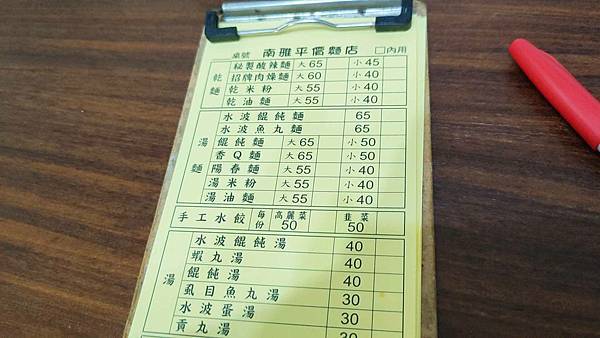 桌號 南雅平價麵店 □內用
乾麵
秘製酸辣麵 大65 小45
招牌肉燥麵 大60 小40
乾米粉 大55 小40
乾油麵 大55 小40
湯麵
水波餛飩麵 65
水波魚丸麵 65
餛飩麵 大65 小50
香Q麵 大65 小50
陽春麵 大55 小40
湯米粉 大55 小40
湯油麵 大55 小40
手工水餃 每份 高麗菜 50 韭菜 50
湯
水波餛飩湯 40
蝦丸湯 40
餛飩湯 40
虱目魚丸湯 30
水波蛋湯 30
貢丸湯 30